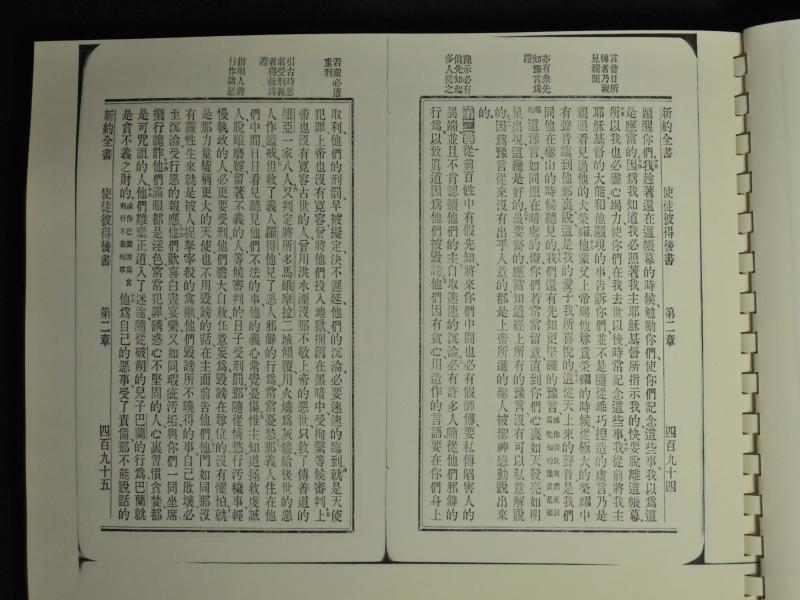 言昔日所
傳者乃親
見親聞
亦有先
知豫言爲
證
豫示必有
僞先知起
多人從之
新約全書 使徒彼得後書 第二章 四百九十四
題醒你們我趁著還在這帳幕的時候勉勵你們使你們記念這些事我以爲這
是應當的因爲我知道我必照著我主耶穌基督所指示我的快要脫離這帳幕
所以我也必盡心竭力使你們在我去世以後時常記念這些事我從前將我主
耶穌基督的大能和他顯現的事告訴你們並不是隨從乖巧揑造的虛言乃是
親眼看見過他的大榮耀他蒙父上帝賜他尊貴榮耀的時候從極大的榮耀中
有聲音臨到他那裏說這是我的愛子我所喜悅的這從天上來的聲音是我們
同他在聖山的時候聽見的我們還有先知更堅確的豫言
這豫言如同照在暗處的燈你們若常常留意直到你們心裏如天發亮如明
星出現這纔是好的最要緊的應當知道經上所有的豫言沒有可以私意解說
的因爲豫言從來沒有出乎人意的都是上帝所選的聖人被聖神感動說出來
的
第二章從前百姓中有假先知將來你們中間也必有假師傅要私傳陷害人的
異端並且不肯認贖他們的主自取速速的沉淪必有許多人隨從他們邪僻的
行爲以致眞道因爲他們被毀謗他們因有貪心用造作的言語要在你們身上
若輩必遭
重刑
引古時惡
者受刑義
者得救爲
證
指明人將
行作諸惡
取利他們的刑罰早被擬定決不遲延他們的沉淪必要速速的臨到就是天使
犯罪上帝也沒有寬容曾將他們投入地獄捆鎖在黑暗中受拘繫等候審判上
帝也沒有寬容古世的人曾用洪水湮沒那不敬上帝的惡世只救了傳善道的
挪亞一家八人又判定將所多馬蛾摩拉二城傾覆用火燒爲灰燼給後世的惡
人作鑑戒但救了義人羅得他見了惡人邪僻的行爲常常憂愁那義人住在他
們中間日日看見聽見他們不法的事他的義心常覺憂傷惟主知道拯救虔誠
人脫離磨難留著不義的人等候審判的日子受刑罰那隨從情慾行汚穢事輕
慢執政的人必更要受刑他們膽大自放任意妄爲毀謗在尊位的沒有懼怕就
是那力量權柄更大的天使也不用毀謗的話在主面前告他們他們如同那沒
有靈性生來就是被人捉拏宰殺的禽獸他們毀謗所不曉得的事自己敗壞必
主沉淪受行惡的報應他們歡喜白晝宴樂又如同瑕疵汚垢與你們一同坐席
樂行詭詐他們滿眼都是淫色常常犯罪誘惑心不堅固的人心裏習慣貪婪都
是可咒詛的人他們離棄正道入了迷途隨從破朔的兒子巴蘭的行爲巴蘭就
是貪不義之財的他爲自己的惡事受了責備那不能說話的
新約全書 使徒彼得後書 第二章 四百九十五